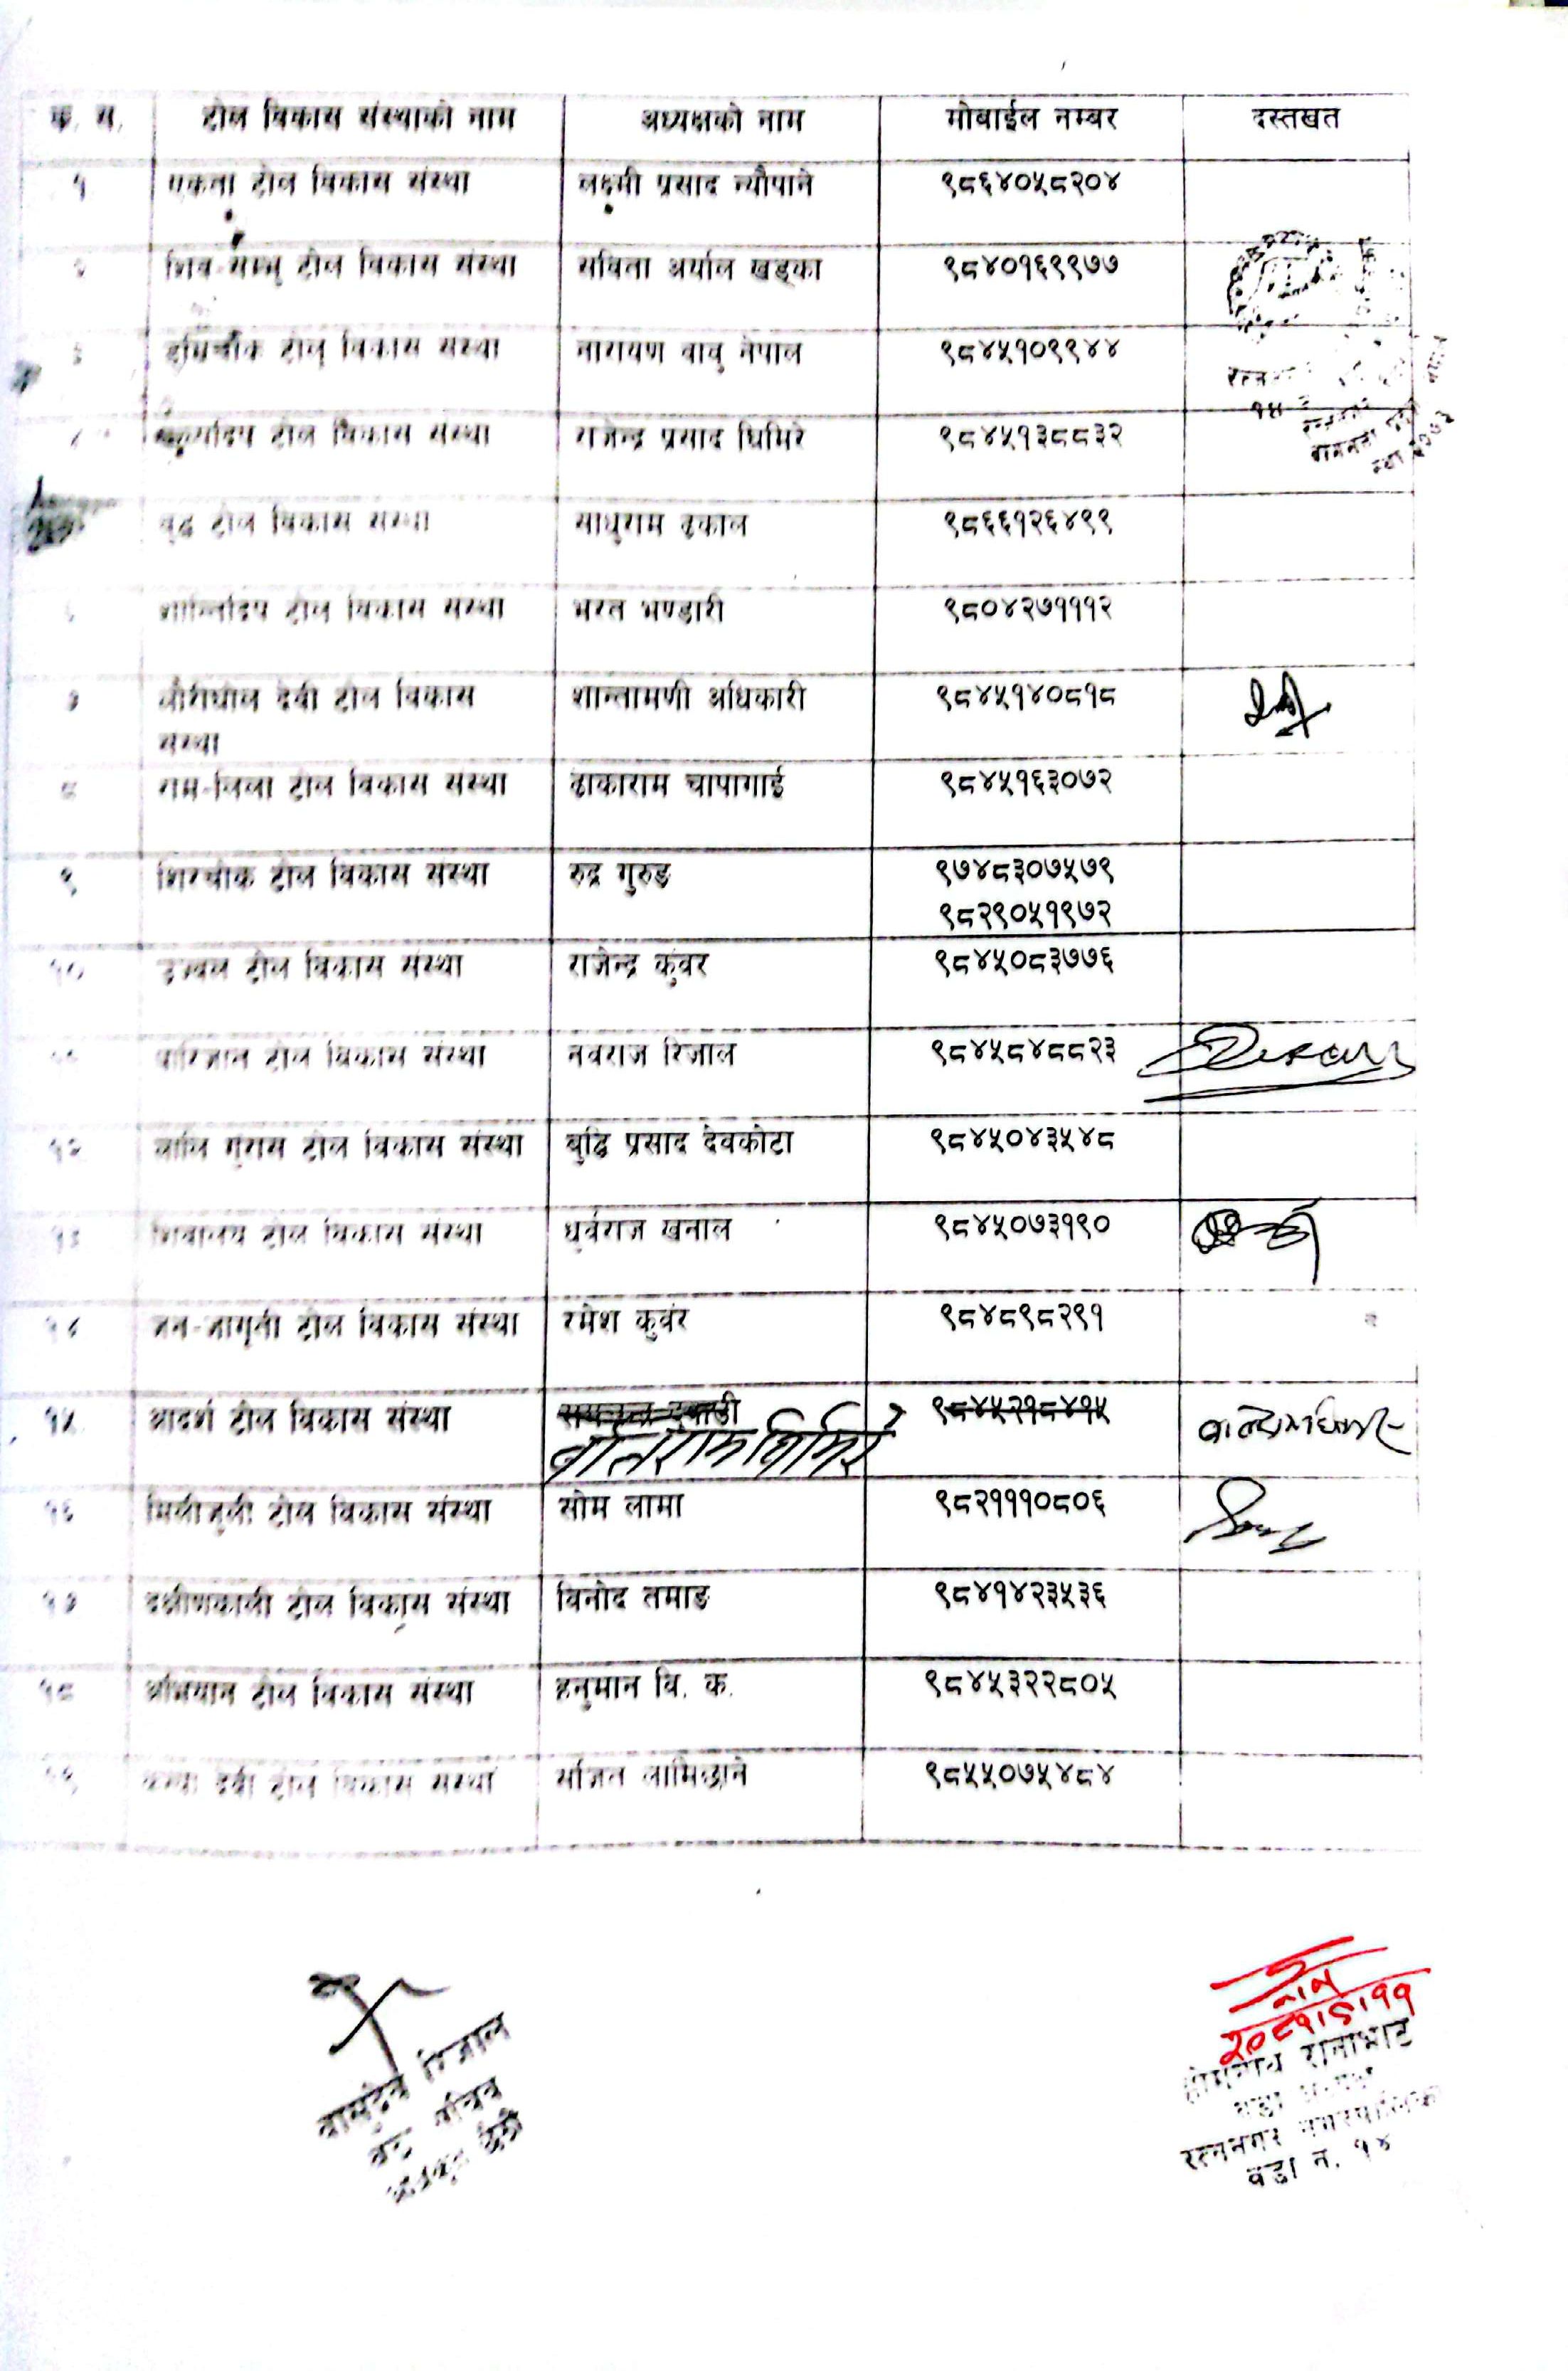 क. स. टोल विकास संस्थाको नाम अध्यक्षको नाम मोबाईल नम्बर दस्तखत
१ एकता टोल विकास संस्था लक्ष्मी प्रसाद न्यौपाने ९८६४०५८२०४
शिव-सम्भु टोल विकास संस्था सविता अर्याल खड्का ९८४०१६९९७७
टोल विकास संस्था नारायण बाबु नेपाल ९८४५१०९९४४
टोल विकास संस्था राजेन्द्र प्रसाद घिमिरे ९८४५१३८८३२
बुद्ध टोल विकास संस्था साधुराम ढकाल ९८६६१२६४९९
शान्तिदिप टोल विकास संस्था भरत भण्डारी ९८०४२७१११२
७ देवी टोल विकास शान्तामणी अधिकारी ९८४५१४०८१८
संस्था
८ राम-लिला टोल विकास संस्था ढाकाराम चापागाई ९८४५१६३०७२
९ शिरचोक टोल विकास संस्था रुद्र गुरुङ ९७४८३०७५७९
९८२९०५१९७२
१० उज्वल टोल विकास संस्था राजेन्द्र कुंवर ९८४५०८३७७६
११ पारिजात टोल विकास संस्था नवराज रिजाल ९८४५८४८८२३
१२ लालि गुरास टोल विकास संस्था बुद्धि प्रसाद देवकोटा ९८४५०४३५४८
१३ शिवालय टोल विकास संस्था धुर्वराज खनाल ९८४५०७३१९०
१४ जन-जागृती टोल विकास संस्था रमेश कुवंर ९८४८९८२९१
१५ आदर्श टोल विकास संस्था ९८४५२१८४१५
१६ मिलीजुली टोल विकास संस्था सोम लामा ९८२१११०८०६
१७ दक्षीणकाली टोल विकास संस्था विनोद तमाङ ९८४१४२३५३६
१८ अभियान टोल विकास संस्था हनुमान वि. क. ९८४५३२२८०५
१९ देवी टोल विकास संस्था सजित लामिछाने ९८५५०७५४८४
बासुदेव रिजाल
२०८१।८।११
रानाभाट
वडा
रत्ननगर नगरपालिका
वडा न. १४